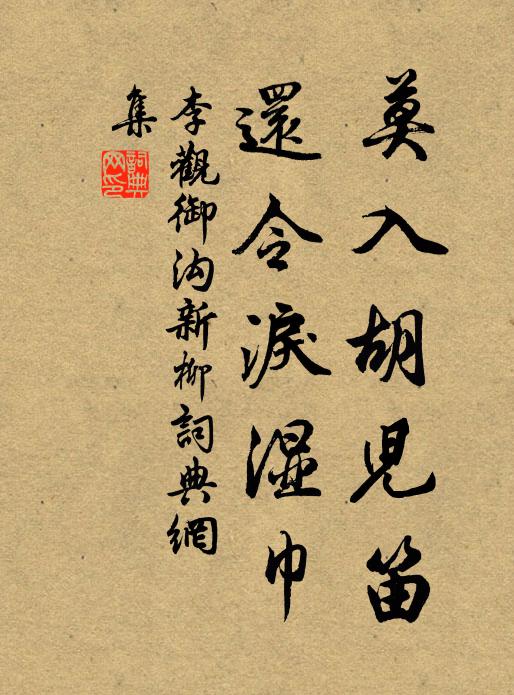 莫入胡兒笛
還令淚濕巾
李觀御沟新柳詞典網
集
詞典
网印